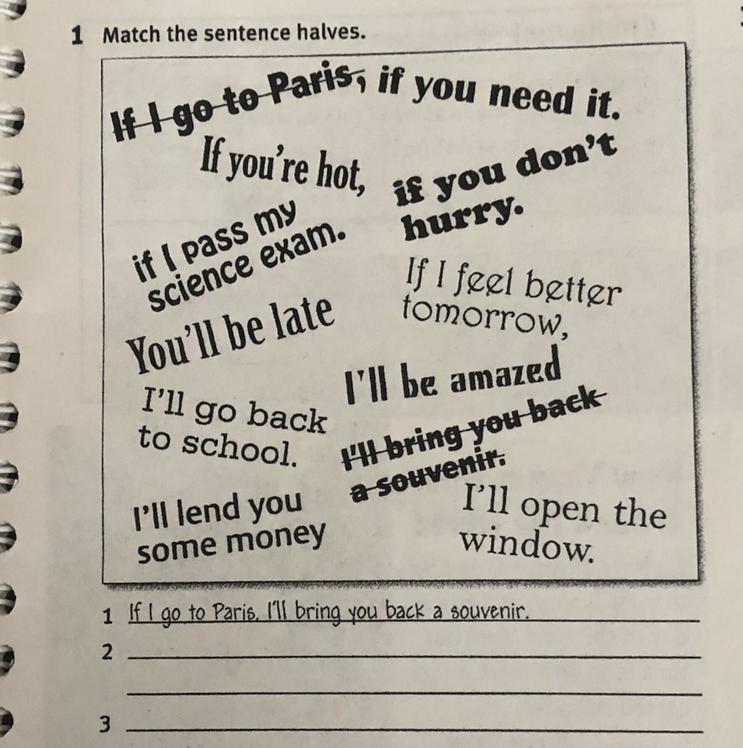 1 Match the sentence halves.
If I go to Paris, if you need it.
If you're hot,
if you don't
hurry.
if I pass my
science exam.
If I feel better
tomorrow,
You'll be late
I'll be amazed
I'll go back
to school.
I'll bring you back
a souvenir.
I'll lend you
some money
I'll open the
window.
1 If I go to Paris, I'll bring you back a souvenir.
2
3